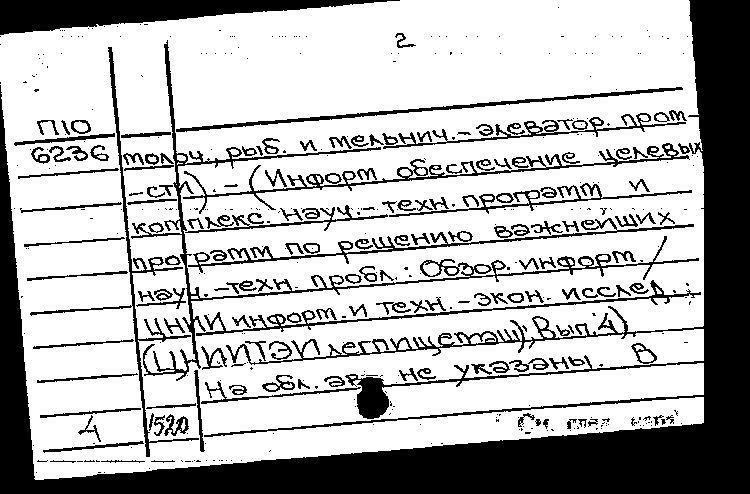 2
П10
6236 молоч., рыб. и мельнич.-элеватор. пром-
-сти). - (Информ. обеспечение целевых
комплекс. науч.-техн. программ и
программ по решению важнейших
науч.-техн. пробл.: Обзор. информ. /
ЦНИИ информ. и техн.-экон. исслед. ;
(ЦНИИТЭИлегпищемаш); Вып. 4).
На обл. авт. не указаны. В
4 1520 См. след. карт.